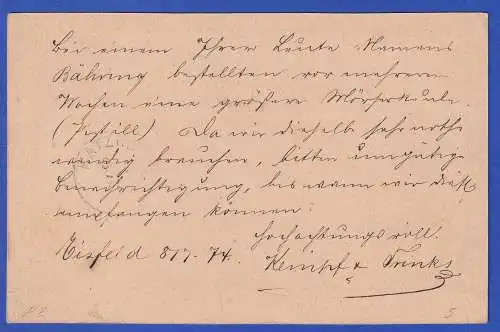 Bei einem Ihrer Leute Namens
Bähring bestellten vor mehreren
Wochen eine größere Mörserkeule
(Pistill) Da wir dieselbe sehr noth-
wendig brauchen, bitten um gütige
Benachrichtigung, bis wann wir diese
empfangen können.
Hochachtungsvoll
Eisfeld 8/7. 74. Kempf & Trinks